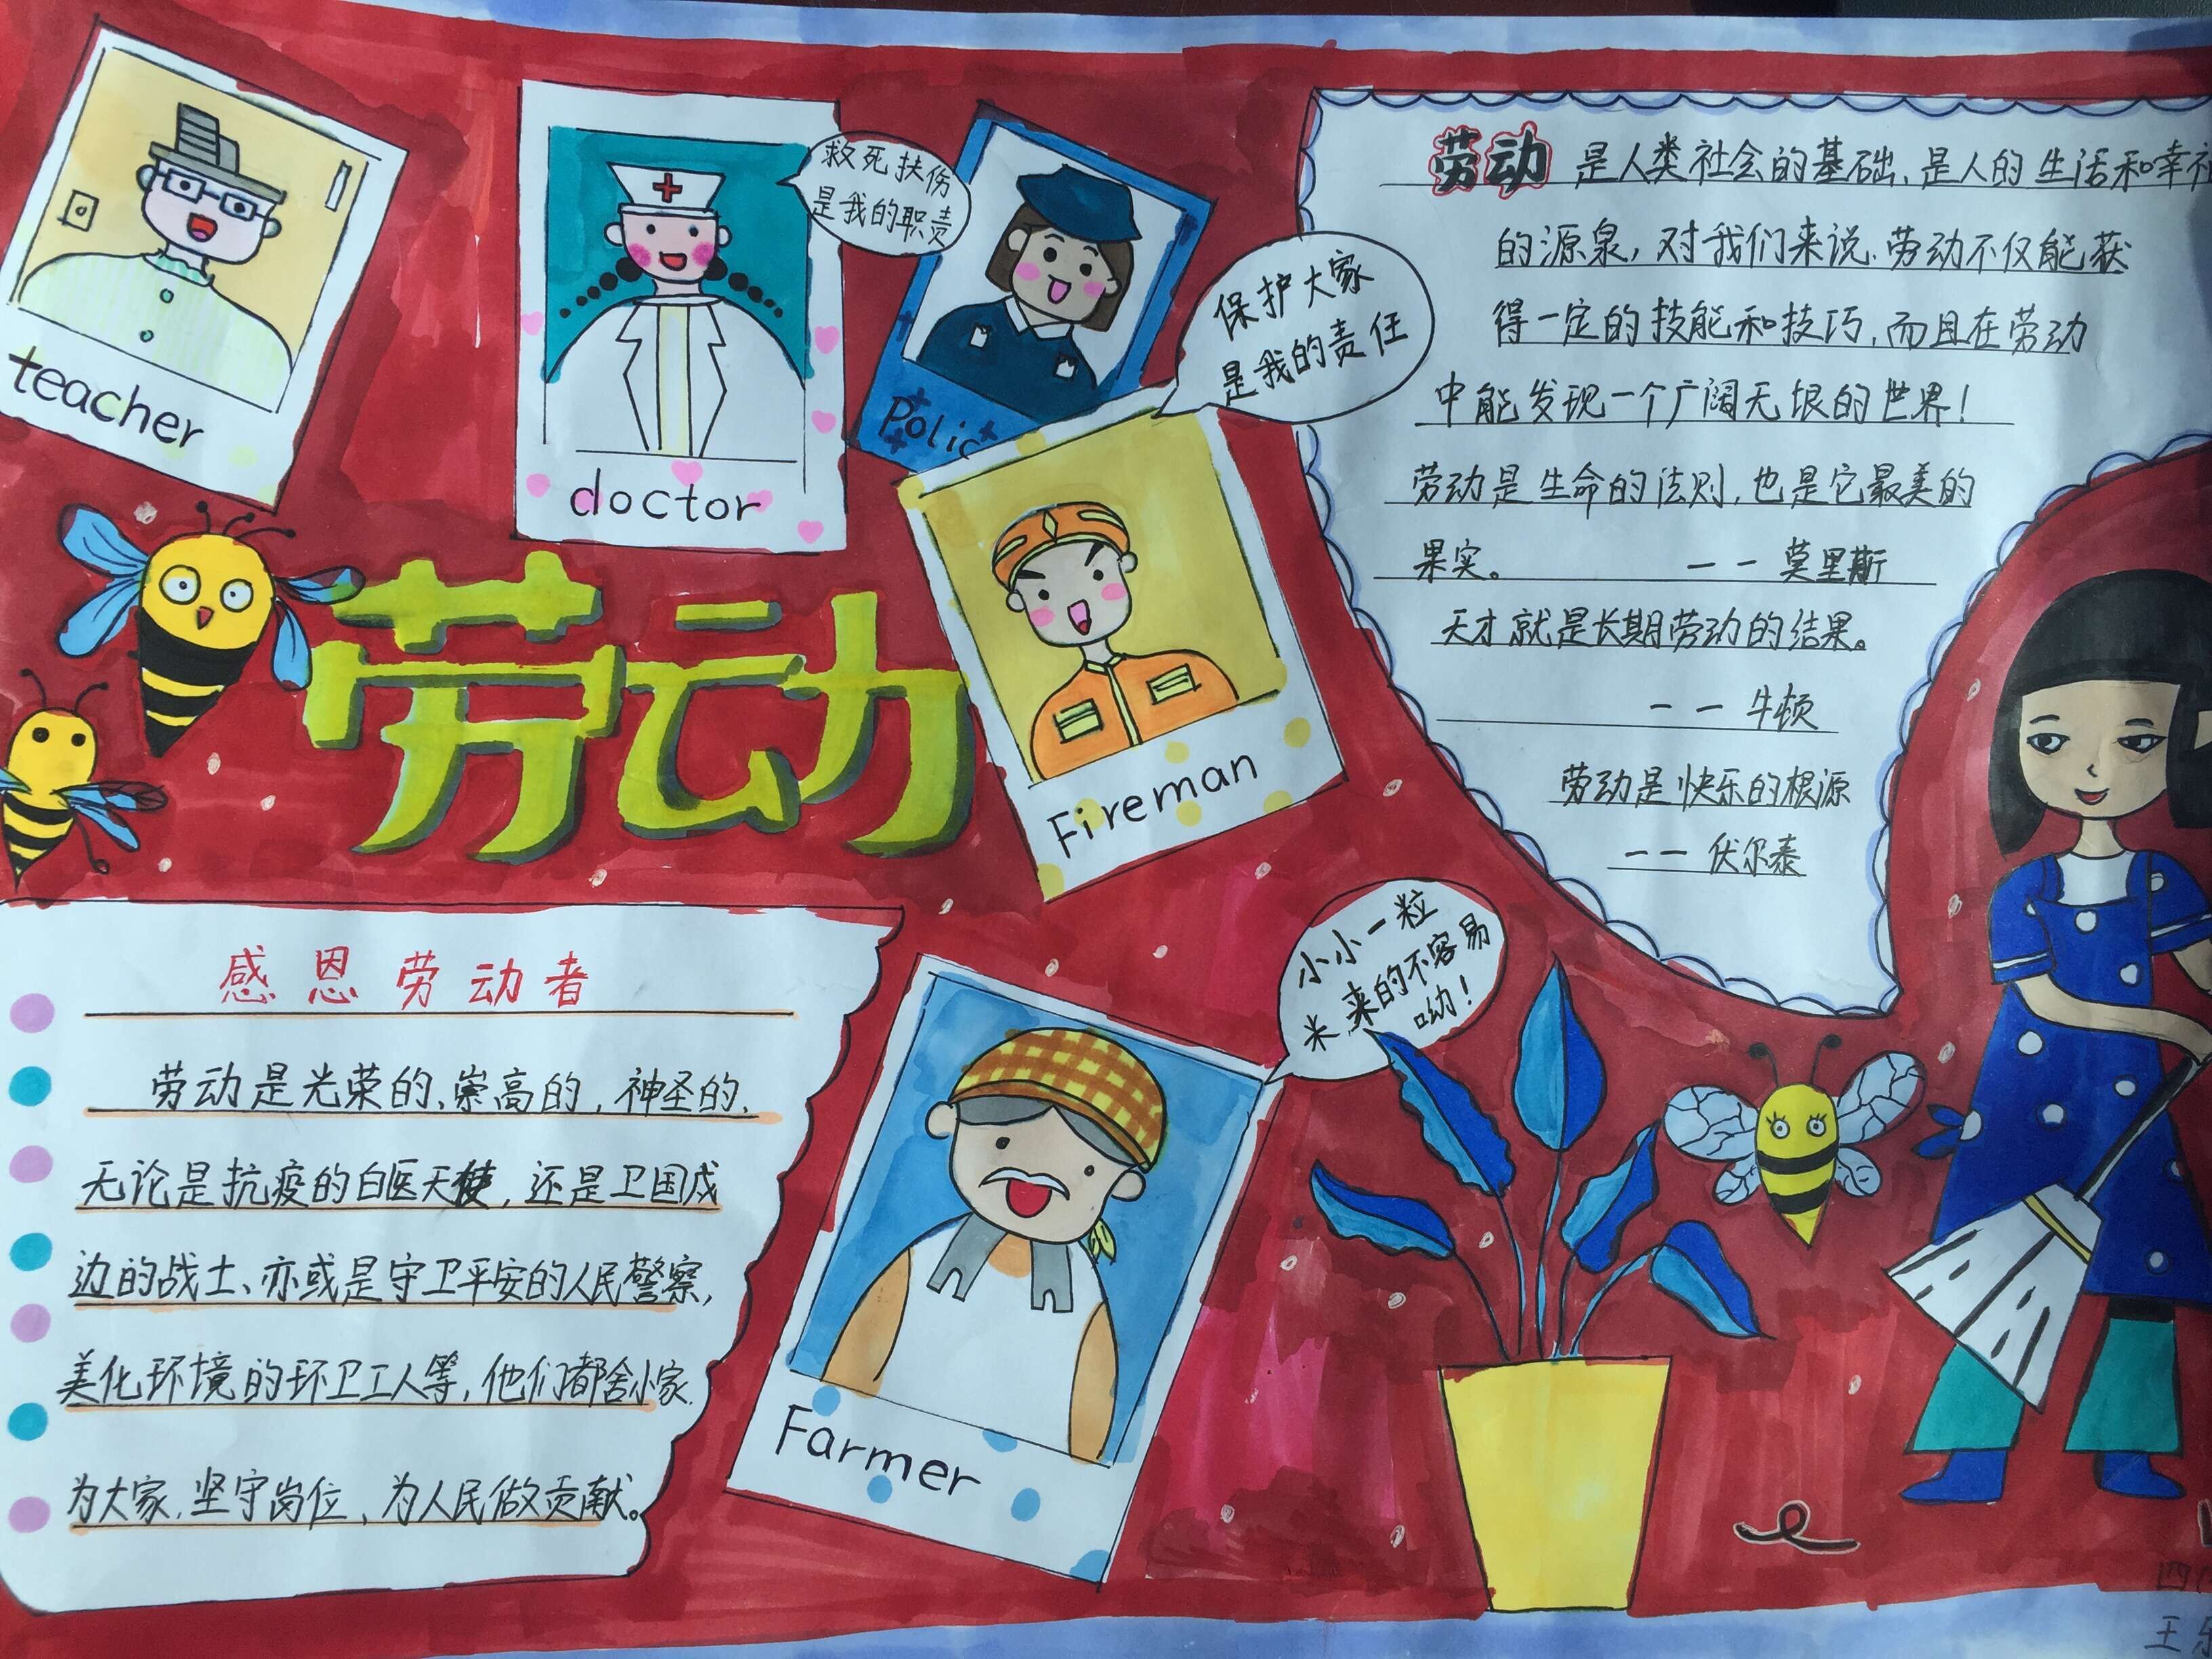 teacher
doctor
救死扶伤
是我的职责
Polic
保护大家
是我的责任
Fireman
劳动
劳动是人类社会的基础、是人的生活和幸福
的源泉，对我们来说.劳动不仅能获
得一定的技能和技巧，而且在劳动
中能发现一个广阔无垠的世界！
劳动是生命的法则，也是它最美的
果实。 —— 莫里斯
天才就是长期劳动的结果。
—— 牛顿
劳动是快乐的根源
—— 伏尔泰
感恩劳动者
劳动是光荣的、崇高的，神圣的、
无论是抗疫的白医天使，还是卫国戍
边的战士、亦或是守卫平安的人民警察，
美化环境的环卫工人等，他们都舍小家.
为大家.坚守岗位、为人民做贡献。
小小一粒
米，来的不容易
呦！
Farmer
四
王